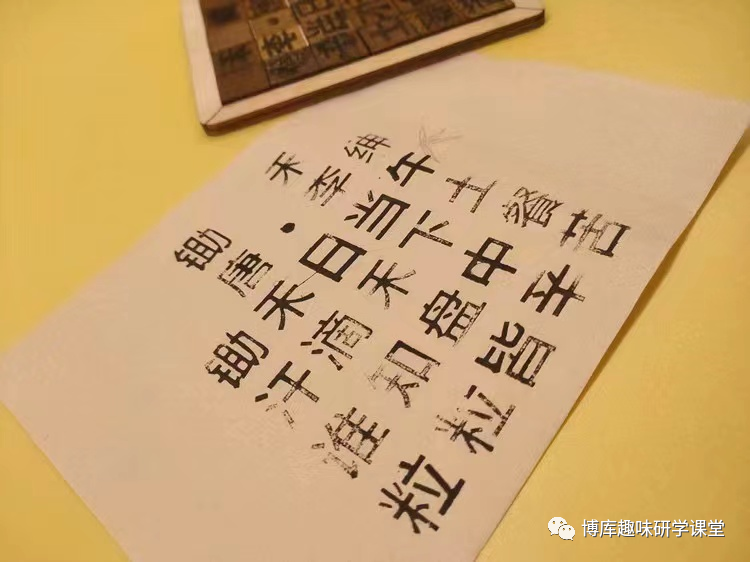 锄禾
唐·李绅
锄禾日当午
汗滴禾下土
谁知盘中餐
粒粒皆辛苦
博库趣味研学课堂